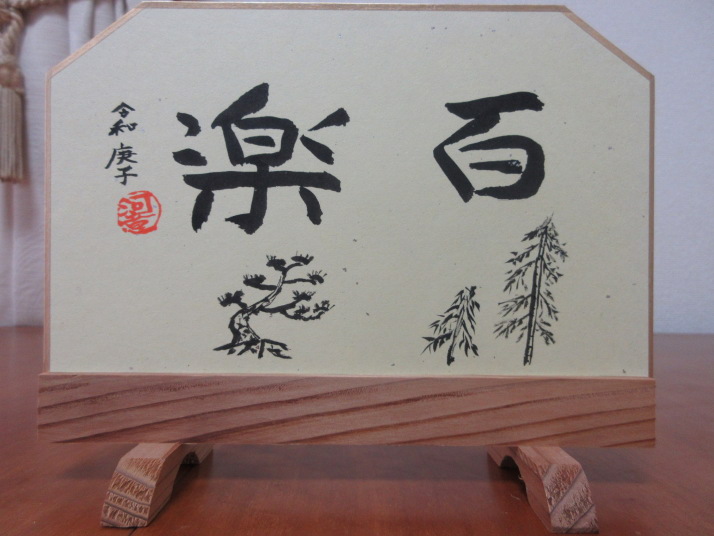 百楽
令和庚子